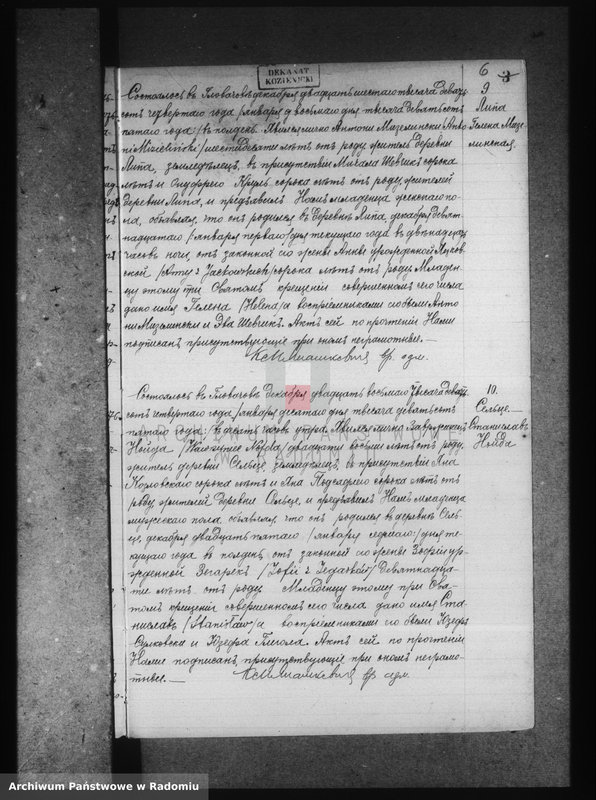 DEKANAT
KOZIENICKI
6
3
Состоялось въ Гловачовѣ декабря двадцать шестаго тысяча девять
сотъ четвертаго года /января восьмаго дня тысяча девятьсотъ
пятаго года:/ въ полдень. Явился лично Антони Мизелински /Anto
ni Mizieliński/ шестьдесяти лѣтъ отъ роду житель деревни
Липа, земледѣлецъ, въ присутствіи Михала Шевчикъ сорока
лѣтъ и Онуфрего Круль сорока лѣтъ отъ роду, жителей
деревни Липа, и предъявилъ Намъ младенца женскаго по-
ла, объявляя, что онъ родился въ деревнѣ Липа, декабря девят
надцатаго /января перваго/ дня текущаго года въ двѣнадцать
часовъ ночи, отъ законной его жены Анны урожденной
ской /Anny z сорока лѣтъ отъ роду. Младен-
цу этому при Святомъ крещеніи совершенномъ его числа
дано имя Гелена /Helena/ а воспріемниками его были Анто
ни Мизелински и Эва Шевчикъ. Актъ сей по прочтеніи Нами
подписанъ, присутствующіе при ономъ неграмотные.—
9
Липа
Гелена Мизе-
линская.
Состоялось въ Гловачовѣ декабря двадцать восьмаго тысяча девять
сотъ четвертаго года /января десятаго дня тысяча девятьсотъ
пятаго года:/ въ десять часовъ утра. Явился лично Вавржинецъ
Нойда /Wawrzyniec Nojda/ двадцати восьми лѣтъ отъ роду,
житель деревни Сельце, земледѣлецъ, въ присутствіи Яна
Козловскаго сорока лѣтъ и Яна сорока лѣтъ отъ
роду, жителей деревни Сельце, и предъявилъ Намъ младенца
мужескаго пола, объявляя, что онъ родился въ деревнѣ Сель-
це, декабря двадцать пятаго /января седьмаго:/ дня те-
кущаго года въ полдень, отъ законной его жены Зофіи ур-
ожденной /Zofii z девятнадца-
ти лѣтъ отъ роду. Младенцу этому при Свя-
томъ крещеніи совершенномъ его числа дано имя Ста-
ниславъ /Stanisław/ а воспріемниками его были Юзефъ
и Юзефа Актъ сей по прочтеніи
Нами подписанъ, присутствующіе при ономъ неграмо-
тные.—
10.
Сельце
Станиславъ
Нойда
Archiwum Państwowe w Radomiu